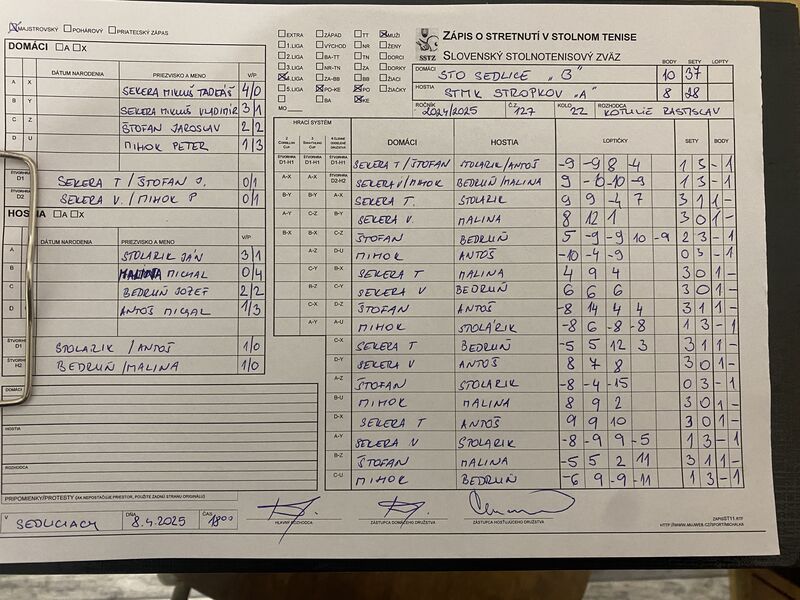 MAJSTROVSKÝ POHÁROVÝ PRIATEĽSKÝ ZÁPAS
DOMÁCI A X
DÁTUM NARODENIA PRIEZVISKO A MENO V/P
A X SEKERA MIKUŠ TADEÁŠ 4/0
B Y SEKERA MIKUŠ VLADIMÍR 3/1
C Z ŠTOFAN JAROSLAV 2/2
D U MIHOK PETER 1/3
ŠTVORHRA D1 SEKERA T / ŠTOFAN J. 0/1
D2 SEKERA V. / MIHOK P 0/1
HOSTIA A X
DÁTUM NARODENIA PRIEZVISKO A MENO V/P
A STOLARIK JÁN 3/1
B MALINA MICHAL 0/4
C BEDRUŇ JOZEF 2/2
D ANTOŠ MICHAL 1/3
ŠTVORHRA D1 STOLARIK / ANTOŠ 1/0
ŠTVORHRA H2 BEDRUŇ / MALINA 1/0
DOMÁCI
HOSTIA
ROZHODCA
PRIPOMIENKY/PROTESTY (AK NEPOSTAČUJE PRIESTOR, POUŽITE ZADNÚ STRANU ORIGINÁLU)
V SEDLICIACH DŇA 8.4.2025 ČAS 18⁰⁰
HLAVNÝ ROZHODCA ZÁSTUPCA DOMÁCEHO DRUŽSTVA ZÁSTUPCA HOSŤUJÚCEHO DRUŽSTVA
EXTRA ZÁPAD TT MUŽI
1.LIGA VÝCHOD NR ŽENY
2.LIGA BA-TT TN DORCI
3.LIGA NR-TN ZA DORKY
4.LIGA ZA-BB BB ŽIACI
5.LIGA PO-KE PO ŽIAČKY
BA KE
MO
ZÁPIS O STRETNUTÍ V STOLNOM TENISE
SSTZ SLOVENSKÝ STOLNOTENISOVÝ ZVÄZ
BODY SETY LOPTY
DOMÁCI STO SEDLICE "B" 10 37
HOSTIA STMK STROPKOV "A" 8 28
ROČNÍK 2024/2025 Č.Z. 127 KOLO 22 ROZHODCA KOTULIČ RASTISLAV
HRACÍ SYSTÉM
DOMÁCI HOSTIA LOPTIČKY SETY BODY
D1-H1 D1-H1 D1-H1 SEKERA T / ŠTOFAN STOLARIK/ANTOŠ -9 -9 8 -4 1 3 - 1
A-X A-X D2-H2 SEKERA V/MIHOK BEDRUŇ/MALINA 9 -10 -10 -9 1 3 - 1
B-Y B-Y A-X SEKERA T. STOLARIK 9 9 -4 7 3 1 1 -
A-Y C-Z B-Y SEKERA V. MALINA 8 12 1 3 0 1 -
B-X B-X C-Z ŠTOFAN BEDRUŇ 5 -9 -9 10 -9 2 3 - 1
A-Z D-U MIHOK ANTOŠ -10 -4 -9 0 3 - 1
C-Y B-X SEKERA T MALINA 4 9 4 3 0 1 -
B-Z C-Y SEKERA V BEDRUŇ 6 6 6 3 0 1 -
C-X D-Z ŠTOFAN ANTOŠ -8 14 4 4 3 1 1 -
A-Y A-U MIHOK STOLÁRIK -8 6 -8 -8 1 3 - 1
C-X SEKERA T BEDRUŇ -5 5 12 3 3 1 1 -
D-Y SEKERA V ANTOŠ 8 7 8 3 0 1 -
A-Z ŠTOFAN STOLARIK -8 -4 -15 0 3 - 1
B-U MIHOK MALINA 8 9 2 3 0 1 -
D-X SEKERA T ANTOŠ 9 9 10 3 0 1 -
A-Y SEKERA V STOLARIK -8 -9 9 -5 1 3 - 1
B-Z ŠTOFAN MALINA -5 5 2 11 3 1 1 -
C-U MIHOK BEDRUŇ -6 9 -9 -11 1 3 - 1
ZAPISST11.RTF
HTTP://WWW.MUJWEB.CZ/SPORT/MICHALKA